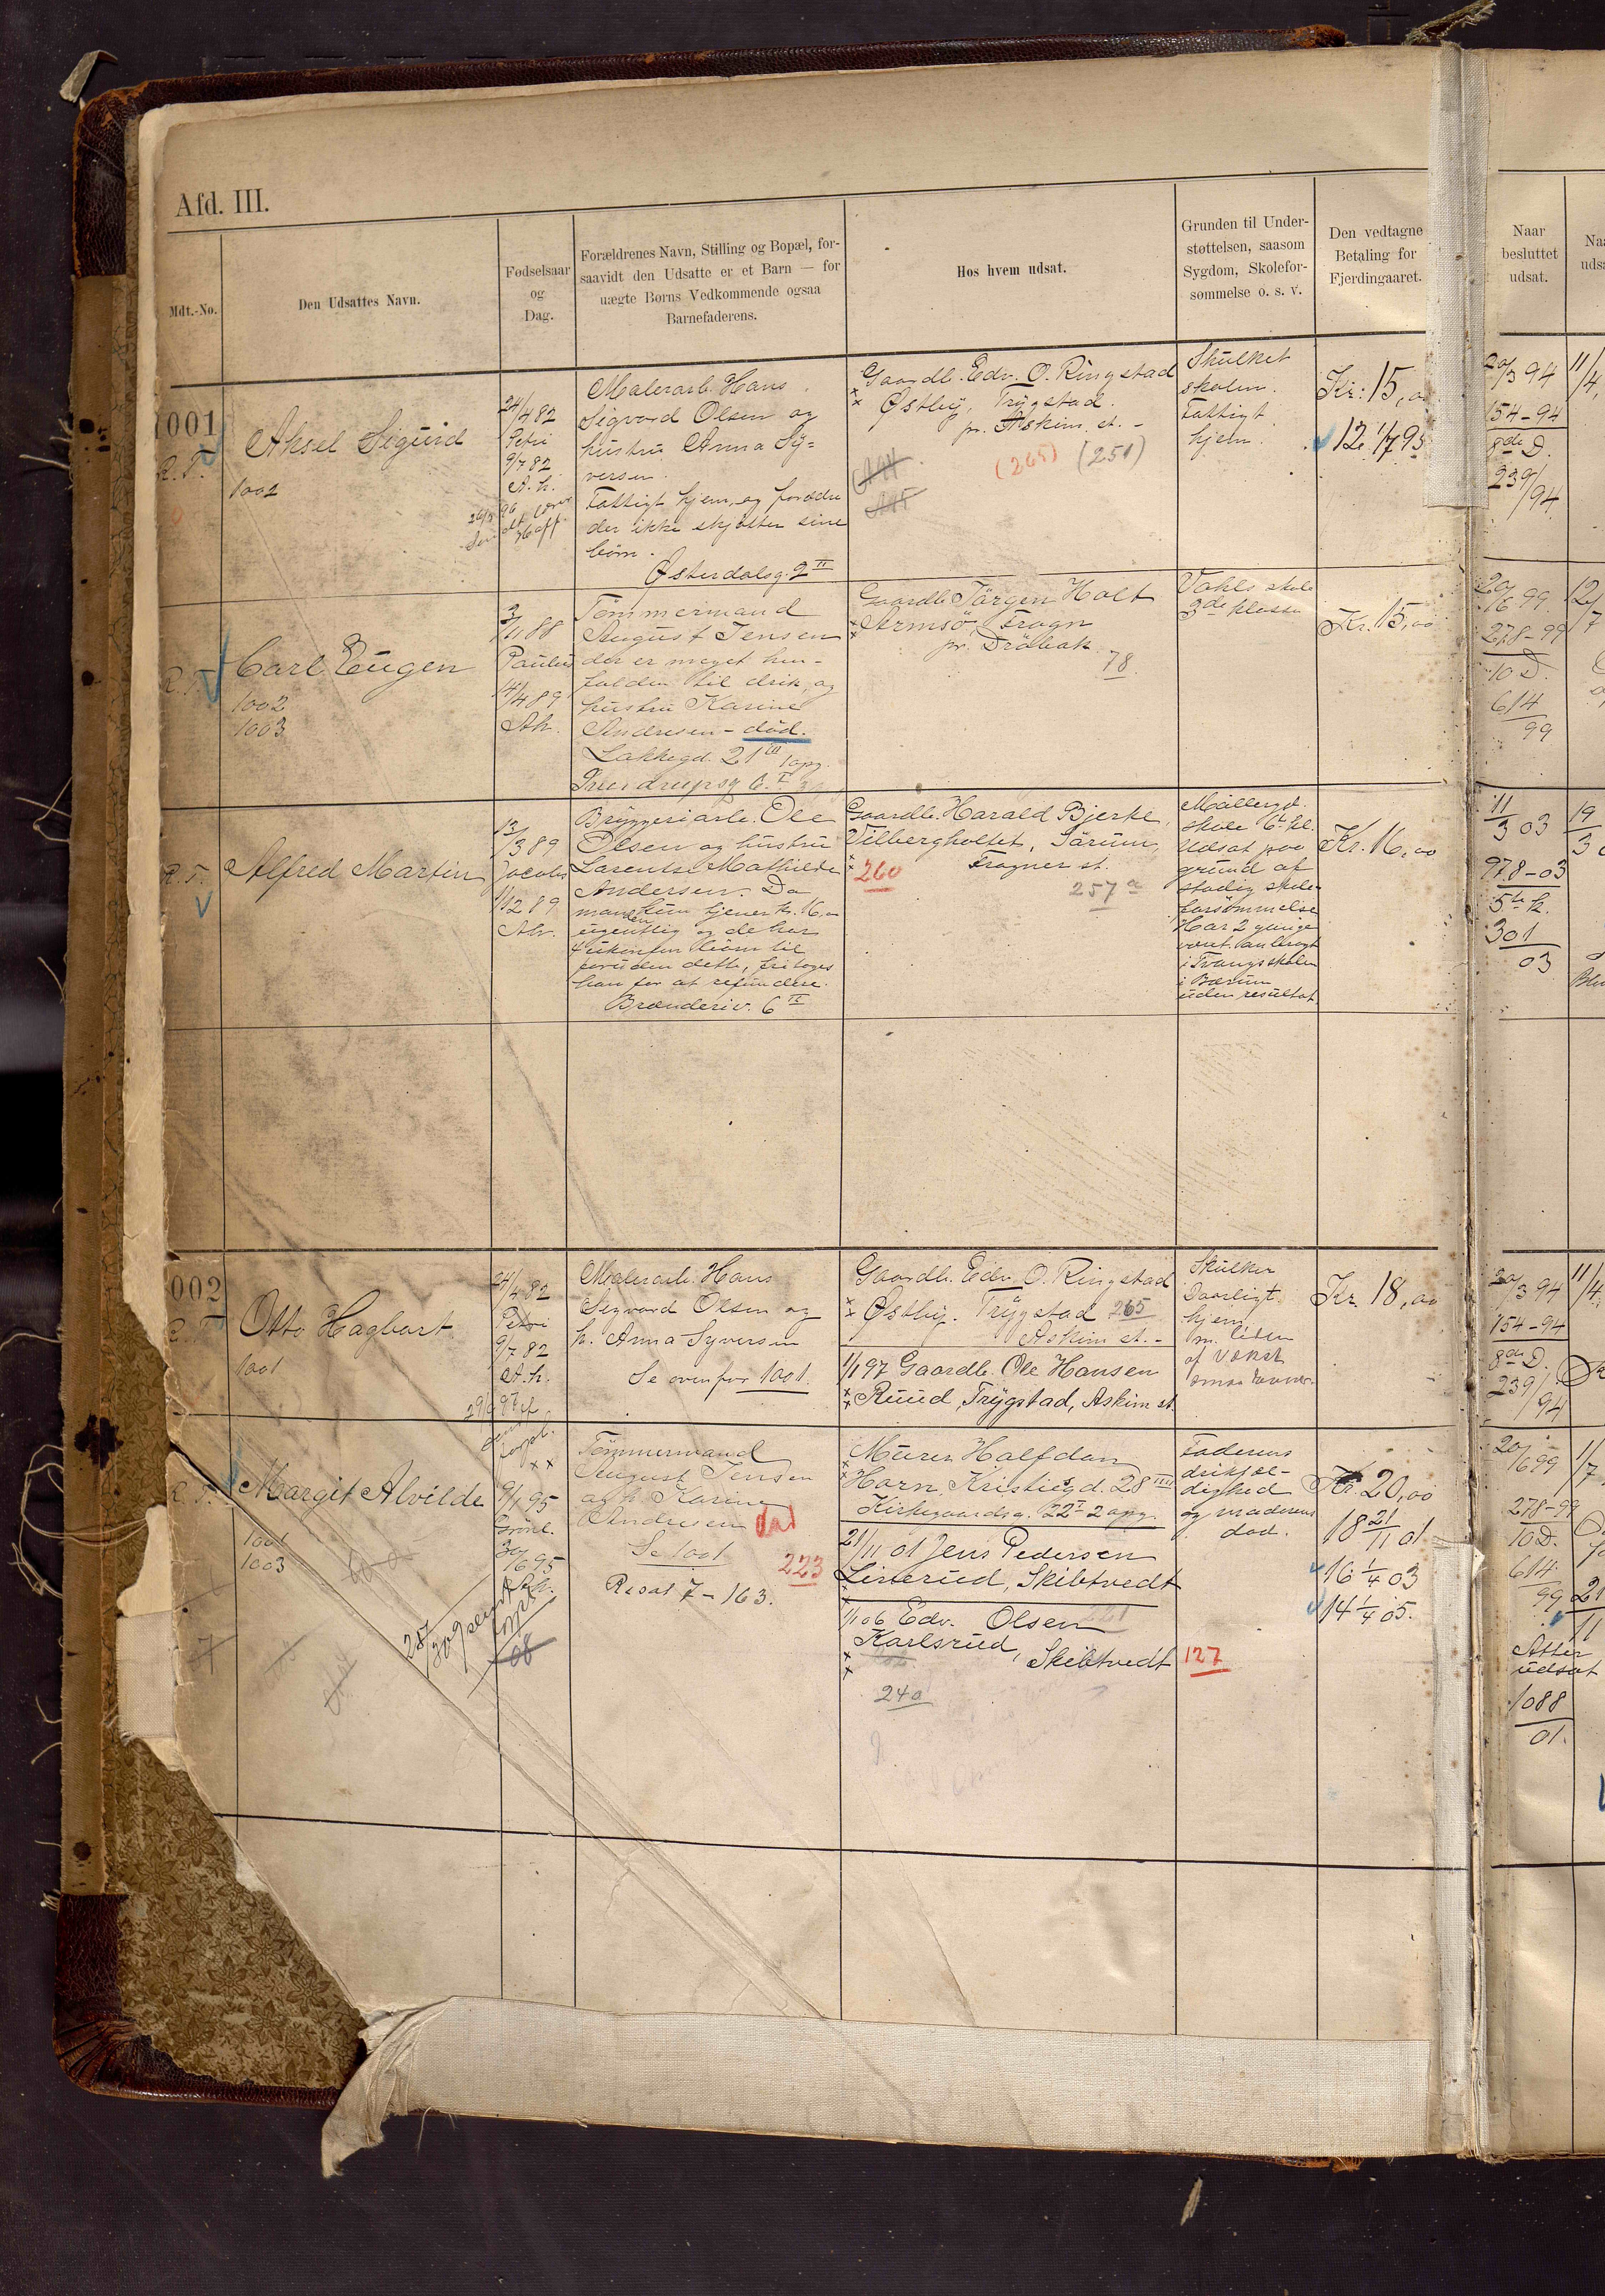 Afd. III.
Mdt.-No.
Den Udsattes Navn.
Fødselsaar
og
Dag.
Forældrenes Navn, Stilling og Bopæl, for-
saavidt den Udsatte er et Barn — for
uægte Børns Vedkommende ogsaa
Barnefaderens.
Hos hvem udsat.
Grunden til Under-
støttelsen, saasom
Sygdom, Skolefor-
sømmelse o. s. v.
Den vedtagne
Betaling for
Fjerdingaaret.
Naar
besluttet
udsat.
1001
R. F.
Aksel Sigurd
1002
24/4 82
Petri
9/7 82
A. h.
Malerarb. Hans
Sigvard Olsen og
hustru Anna Sy-
versen.
Fattigt hjem, og forældre
der ikke skjøtter sine
börn.
Østerdalsg. 2 II
Gaardb. Edv. O. Ringstad
Østby, Trygstad.
pr. Askim st. -
(265) (251)
Skulket
skolen.
Fattigt
hjem.
Kr: 15,
12 1/7 95
20/3 94
154-94
8de D.
239/94
11/4
R. F.
Carl Eugen
1002
1003
3/11 88
Paulus
14/4 89
Ah.
Tømmermand
August Jensen
der er meget hen-
falden til drik, og
hustru Karine
Andresen - død.
Lakkegd. 21 III 1 opg.
Gaardb. Jörgen Holt
Armsö, Frogn
pr. Dröbak
78
Vahls skole
3de klasse
Kr. 15,00
20/6 99.
278-99
10 D.
614
99
12/7
R. F.
Alfred Martin
13/3 89
Jacobs
1/12 89
Ah.
Bryggeriarb. Ole
Olsen og hustru
Laurentse Mathilde
Andersen. Da
manden kun tjener kr. 16,-
ugentlig og de har
4 ukonfim. börn til
foruden dette, fritages
han for at refundere.
Brænderiv. 6 II
Gaardb. Harald Bjerke,
Vilbergholtet, Sörum,
Frogner st.
260
257 a
Möllergd.
skole 6te kl.
Udsat paa
grund af
stadig skole-
forsømmelse
Har 2 gange
været anbragt
i Tvangsskolen
i Bærum
uden resultat.
Kr. 16,00
11/3 03
978-03
5te k.
301
03
19/3
1002
R. F.
Otto Hagbart
1001
24/4 82
Petri
9/7 82
A. h.
Malerarb. Hans
Sigvard Olsen og
h. Anna Syversen
Se ovenfor 1001.
Gaardb. Edv. O. Ringstad
Østby. Trygstad 265
Askim st. -
1/1 97 Gaardb. Ole Hansen
Ruud, Trygstad, Askim st.
Skulker
Daarligt
hjem.
m. liden
af vækst
Kr. 18,00
20/3 94
154-94
8de D.
239/94
11/4
R. F.
Margit Alvilde
1001
1003
9/1 95
Grönl.
30/6 95
Ah.
Tømmermand
August Jensen
og h. Karine
Andresen död
Se 1001
Resol 7-163.
223
Murer Halfdan
Horn, Kristiegd. 28 III
Kirkegaardsg. 22 I 2 opg.
21/11 01 Jens Pedersen
Lintrud, Skibtvedt
1/1 06 Edv. Olsen 221
Karlsrud,
Skibtvedt
240
127
Faderens
drikfæl-
dighed
og moderens
död.
Kr. 20,00
18 21/11 01
16 1/4 03
14 1/4 05.
20/6 99
278-99
10 D.
614
99
Atter
udsat
1088
01.
1/7
21
11